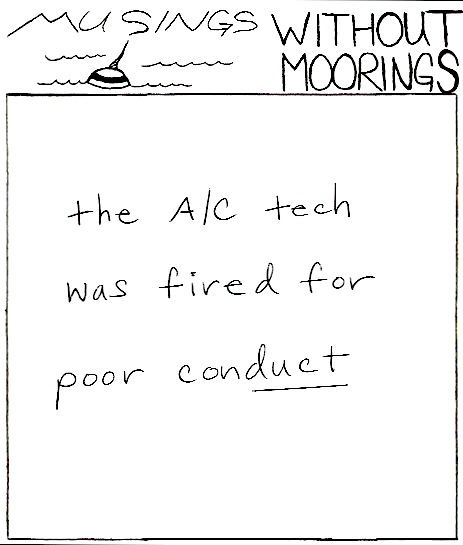 MUSINGS WITHOUT
MOORINGS
the A/C tech
was fired for
poor conduct